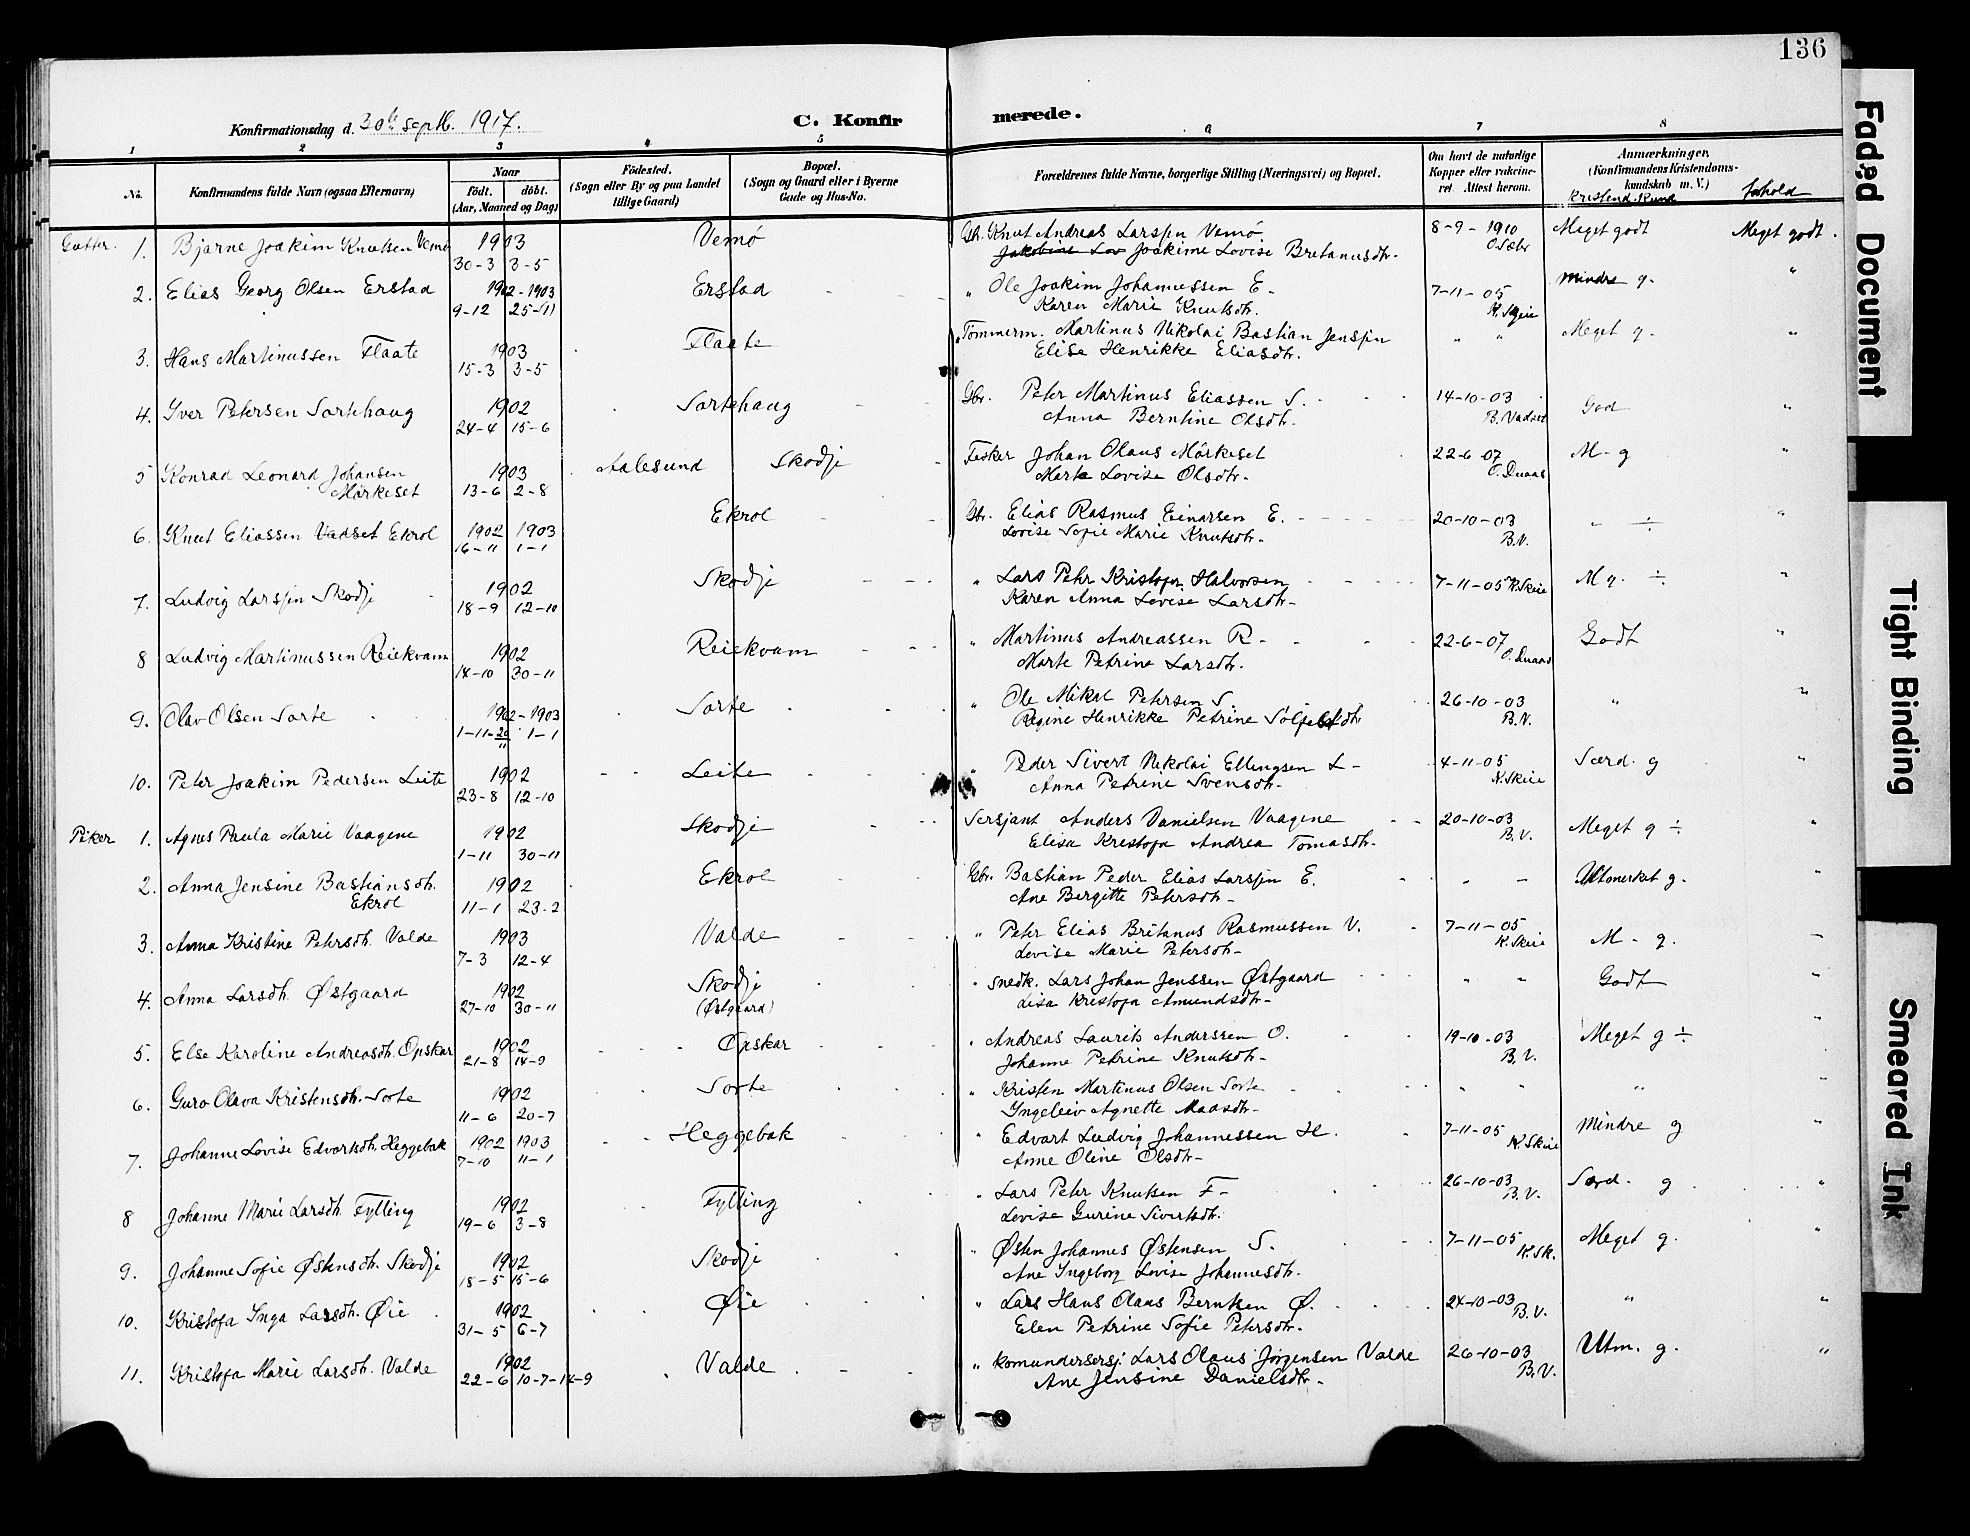 136
Konfirmationsdag d. 30te septb. 1917.
C. Konfirmerede.
1 2 3 4 5 6 7 8
No.
Konfirmandens fulde Navn (ogsaa Efternavn)
Naar
født. døbt.
(Aar, Maaned og Dag)
Födested.
(Sogn eller By og paa Landet
tillige Gaard)
Bopæl.
(Sogn og Gaard eller i Byerne
Gade og Hus-No.
Forældrenes fulde Navne, borgerlige Stilling (Næringsvei) og Bopæl.
Om havt de naturlige
Kopper eller vakcine-
ret. Attest herom.
Anmærkninger.
(Konfirmandens Kristendoms-
kundskab m. V.)
Kristend. Kund. forhold
Gutter. 1. Bjarne Joakim Knutsen Vemø 1903 30-3 3-5 Vemø Gbr. Knut Andreas Larssen Vemø 8-9-1910 Meget godt Meget godt.
Joakime Lovise Bretanusdtr.
2. Elias Georg Olsen Erstad 1902-1903 9-12 25-11 Erstad " Ole Joakim Johannessen E. 7-11-05 K. Skeie Mindre g. "
Karen Marie Knutsdtr.
3. Hans Martinussen Flaate 1903 15-3 3-5 Flaate " Tømmerm. Martinus Nikolai Bastian Jenssen " " Meget g. "
Elise Henrikke Eliasdtr.
4. Yver Petersen Sortehaug 1902 24-4 15-6 Sortehaug Gbr. Peter Martinus Eliassen S. 14-10-03 B. Vadset God "
Anna Berntine Olsdtr.
5 Konrad Leonard Johansen Mørkeset 1903 13-6 2-8 Aalesund Skodje Fisker Johan Olaus Mørkeset 22-6-07 O. Duaas M-g "
Marte Lovise Olsdtr.
6. Knut Eliassen Vadset Ekrol 1902 1903 16-11 1-1 Ekrol Gbr. Elias Rasmus Einarsen E. 20-10-03 B.V. " ÷ "
Lovise Sofie Marie Knutsdtr.
7. Ludvig Larssen Skodje 1902 18-9 12-10 Skodje " Lars Petr Kristofer Halvorsen 7-11-05 K. Skeie M g. ÷ "
Karen Anna Lovise Larsdtr.
8 Ludvig Martinussen Reiekvam 1902 14-10 30-11 Reiekvam " Martinus Andreassen R. 22-6-07 O. Duaas Godt "
Marte Petrine Larsdtr.
9. Olav Olsen Sorte 1902-1903 1-11-20/11 1-1 Sorte " Ole Mikal Petersen S. 26-10-03 B.V. " "
Regine Henrikke Petrine
10. Peter Joakim Pedersen Leite 1902 23-8 12-10 Leite " Peder Sivert Nikolai Ellingsen L. 4-11-05 K. Skeie Særd. g "
Anna Petrine Svensdtr.
Piker 1. Agnes Paula Marie Vaagene 1902 1-11 30-11 Skodje Sersjant Anders Danielsen Vaagene 20-10-03 B.V. Meget g ÷ "
Elisa Kristofa Andrea Tomasdtr.
2. Anna Jensine Bastiansdtr. Ekrol 1902 11-1 23-2 Ekrol Gbr. Bastian Peder Elias Larssen E. " " Utmerket g. "
Ane Bergitte Petersdtr.
3. Anna Kristine Petersdtr. Valde 1903 7-3 12-4 Valde " Petr Elias Britanus Rasmussen V. 7-11-05 K. Skeie M-g. "
Lovise Marie Petersdtr.
4. Anna Larsdtr. Østgaard 1902 27-10 30-11 Skodje (Østgaard) " snedk. Lars Johan Jenssen Østgaard " " Godt "
Lisa Kristofa Amundsdtr.
5. Else Karoline Andreasdtr. Opskar 1902 21-8 14-9 Opskar " Andreas Laurits Anderssen O. 19-10-03 B.V. Meget g ÷ "
Johanne Petrine Knutsdtr.
6. Guro Olava Kristensdtr. Sorte 1902 11-6 20-7 Sorte " Kristen Martinus Olsen Sorte " " " "
Ingeleiv Agnette Maasdtr.
7. Johanne Lovise Edvartsdtr. Heggebak 1902 1903 7-10 11-1 Heggebak " Edvart Ludvig Johannessen H. 7-11-05 K. Skeie Mindre g "
Anne Oline Olsdtr.
8 Johanne Marie Larsdtr. Fylling 1902 19-6 3-8 Fylling " Lars Petr Knutsen F. 26-10-03 B.V. Særd. g "
Lovise Gurine Sivertsdtr.
9. Johanne Sofie Østensdtr. Skodje 1902 18-5 15-6 Skodje " Østen Johannes Østensen S. 7-11-05 K. Sk. Meget g. "
Ane Ingeborg Lovise Johannesdtr.
10. Kristofa Inga Larsdtr. Øie 1902 31-5 6-7 Øie " Lars Hans Olaus Berntsen Ø. 24-10-03 B.V. " "
Elen Petrine Sofie Petersdtr.
11. Kristofa Marie Larsdtr. Valde 1902 22-6 10-7-14-9 Valde " komandersersj. Lars Olaus Jørgensen Valde 26-10-03 B.V. Utm. g. "
Ane Jensine Danielsdtr.
Faded Document
Tight Binding
Smeared Ink